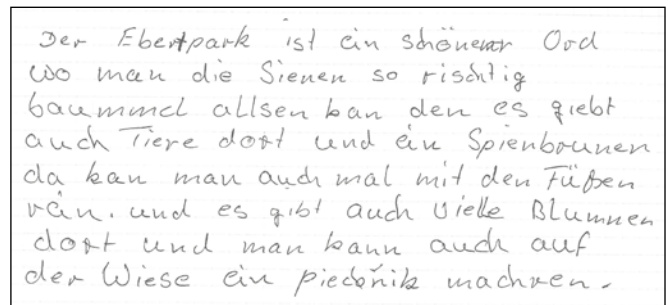 Der Ebertpark ist ein schönener Ord
wo man die Sienen so rischtig
baummel allsen kan den es giebt
auch Tiere dort und ein Spienbrunen
da kan man auch mal mit den Füßen
rein. und es gibt auch vielle Blumnen
dort und man kann auch auf
der Wiese ein piecknik machren.